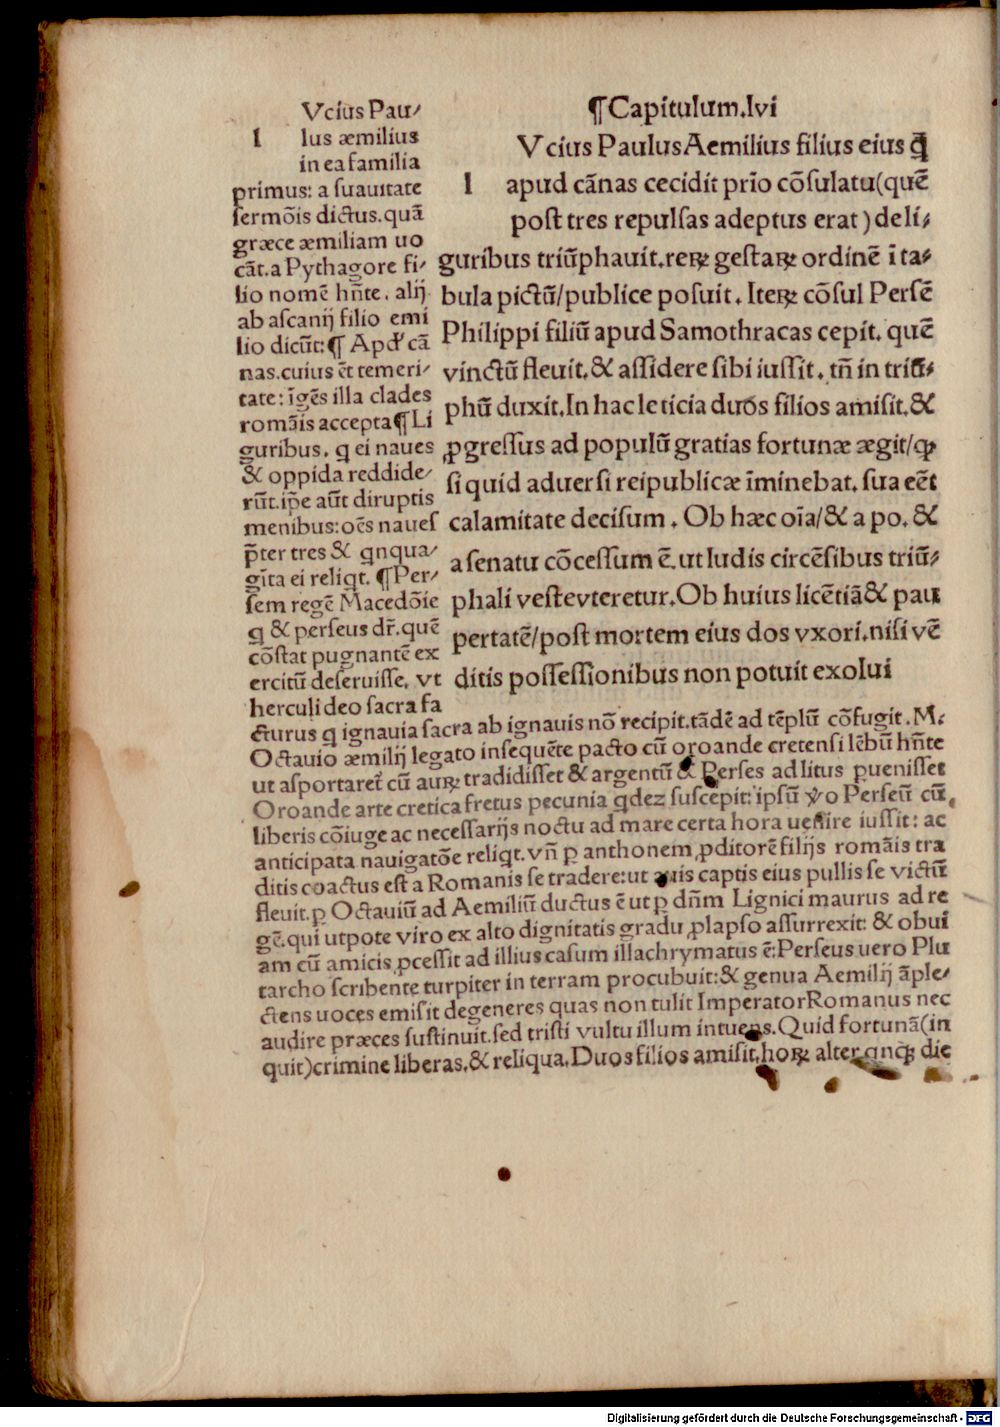 ¶Capitulum.lvi
l Vcius Paulus Aemilius filius eius q̄
apud cānas cecidit prīo cōsulatu(quē
post tres repulsas adeptus erat) de li⸗
guribus triūphauit.reꝝ gestaꝝ ordinē ī ta⸗
bula pictū/publice posuit. Iteꝝ cōsul Persē
Philippi filiū apud Samothracas cepit. quē
vinctū fleuit.& assidere sibi iussit. tn̄ in triū⸗
phū duxit.In hac leticia duos filios amisit.&
ꝓgressus ad populū gratias fortunæ ægit/ꝙ
si quid aduersi reipublicæ īminebat. sua eēt
calamitate decisum. Ob hæc oīa/& a po. &
a senatu cōcessum ē. ut ludis circēsibus triū⸗
phali veste vteretur.Ob huius licētiā & pau
pertatē/post mortem eius dos vxori.nisi vē
ditis possessionibus non potuit exolui
l Vcius Pau⸗
lus æmilius
in ea familia
primus: a suauitate
sermōis dictus.quā
græce æmiliam uo
cāt.a Pythagore fi⸗
lio nomē hn̄te. alij
ab ascanij filio emi
lio dicūt:¶ Apd' cā
nas.cuius ēt temeri⸗
tate: īgēs illa clades
romāis accepta¶ Li
guribus. q ei naues
& oppida reddide⸗
rūt.ip̄e aūt diruptis
menibus: oēs naues
p̄ter tres & qnqua⸗
gīta ei reliqt. ¶Per⸗
sem regē Macedōie
q & perseus dr̄.quē
cōstat pugnantē ex
ercitū deseruisse. vt
herculi deo sacra fa
cturus q ignauia sacra ab ignauis nō recipit.tādē ad tēplū cōfugit.M.
Octauio æmilij legato insequēte pacto cū oroande cretensi lēbū hn̄te
ut asportaret̄ cū auꝝ tradidisset & argentū & Perses ad litus ꝑuenisset
Oroande arte cretica fretus pecunia qdez suscepit: ipsū ṽo Perseū cū
liberis cōiuge ac necessarijs noctu ad mare certa hora uenire iussit: ac
anticipata nauigatōe reliqt. vn̄ ꝑ anthonem ꝓditorē filijs romāis tra
ditis coactus est a Romanis se tradere:ut auis captis eius pullis se victū
fleuit.ꝑ Octauiū ad Aemiliū ductus ē ut ꝑ dn̄m Lignici maurus ad re
gē.qui utpote viro ex alto dignitatis gradu ꝓlapso assurrexit: & obui
am cū amicis ꝓcessit ad illius casum illachrymatus ē: Perseus uero Plu
tarcho scribente turpiter in terram procubuit:& genua Aemilij āple⸗
ctens uoces emisit degeneres quas non tulit Imperator Romanus nec
audire præces sustinuit.sed tristi vultu illum intuens.Quid fortunā(in
quit)crimine liberas.& reliqua.Duos filios amisit.hoꝝ alter qnqꝫ die
Digitalisierung gefördert durch die Deutsche Forschungsgemeinschaft - DFG